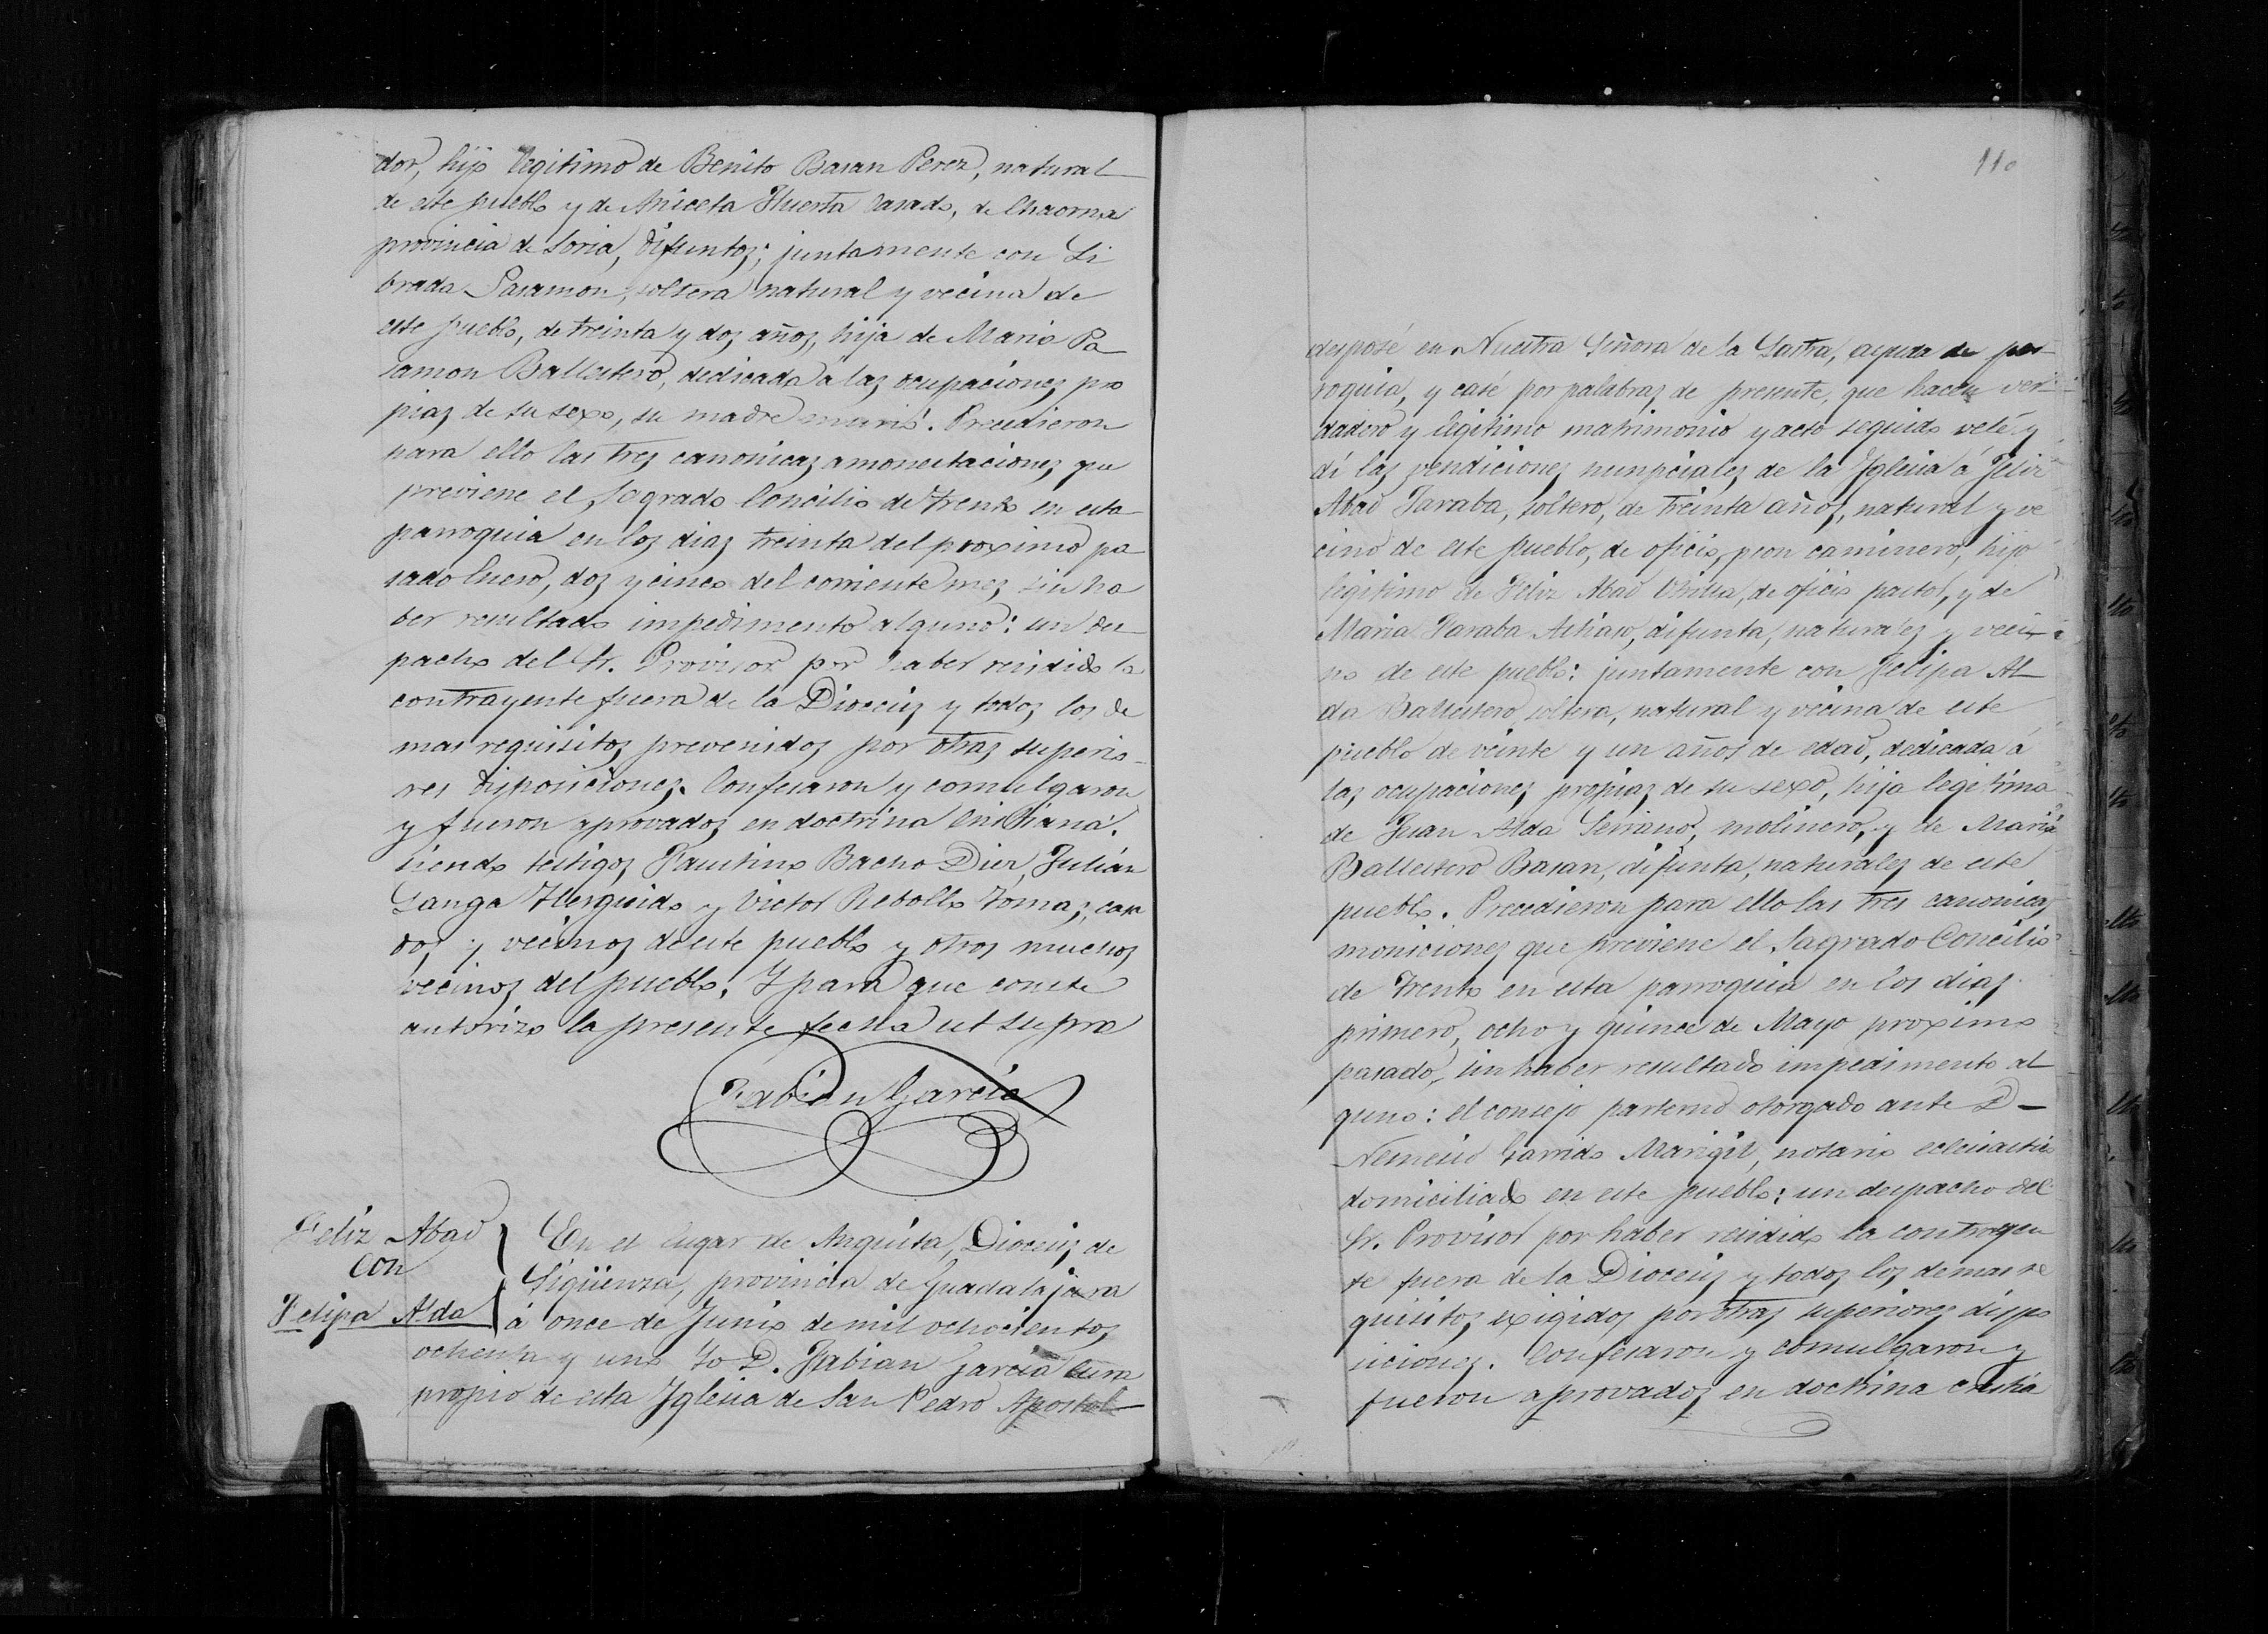 dor, hijo legitimo de Benito Basan Perez, natural
de este pueblo y de Aniceta Huerta Casado, de Chaorna
provincia de Soria, difuntos; juntamente con Li
brada Pasamon, soltera natural y vecina de
este pueblo, de treinta y dos años, hija de Maria Pa
samon Ballestero, dedicada a las ocupaciones pro
pias de su sexo, su madre murió. Precedieron
para ello las tres canonicas amonestaciones que
previene el Sagrado Concilio de Trento en esta
parroquia en los dias treinta del proximo pa
sado Enero, dos y cinco del corriente mes sin ha
ber resultado impedimento alguno: un des
pacho del Sr. Provisor por haber residido la
contrayente fuera de la Diocesis y todos los de
mas requisitos prevenidos por otras superio
res disposiciones. Confesaron y comulgaron
y fueron aprovados en doctrina Cristiana.
siendo testigos Faustino Bacho Dier, Julián
Langa Herguido y Victor Rebollo Tomas, casa
dos y vecinos de este pueblo y otros muchos
vecinos del pueblo. Y para que conste
autorizo la presente fecha ut supra
Fabián García
Feliz Abad
con
Felipa Alda
En el lugar de Anguita, Diocesis de
Sigüenza, provincia de Guadalajara
á once de Junio de mil ochocientos
ochenta y uno Yo D. Fabian García Cura
propio de esta Yglesia de San Pedro Apostol
110
desposé en Nuestra Señora de la Lastra, ayuda de par
roquia, y casé por palabras de presente, que hacen ver
dadero y legitimo matrimonio y acto seguido velé y
dí las vendiciones nunpciales de la Yglesia á Feliz
Abad Taraba, soltero, de treinta años, natural y ve
cino de este pueblo, de oficio, peon caminero, hijo
legitimo de Feliz Abad de oficio pastor, y de
Maria Taraba difunta, naturales y veci
no de este pueblo: juntamente con Felipa Al
da Ballestero soltera, natural y vecina de este
pueblo de veinte y un años de edad, dedicada á
las ocupaciones propias de su sexo, hija legitima
de Juan Alda Serrano, molinero, y de Maria
Ballestero Basan, difunta, naturales de este
pueblo. Precedieron para ello las tres canonicas
moniciones que previene el Sagrado Concilio
de Trento en esta parroquia en los dias
primero, ocho y quince de Mayo proximo
pasado, sin haber resultado impedimento al
guno: el consejo parterno otorgado ante D
Nemesio Garrido Marigil, notario eclesiastico
domiciliado en este pueblo: un despacho del
Sr. Provisor por haber residido la contrayen
te fuera de la Diocesis y todos los demas re
quisitos exigidos por otras superiores dispo
siciones. Confesaron y comulgaron y
fueron aprovados en doctrina cristia